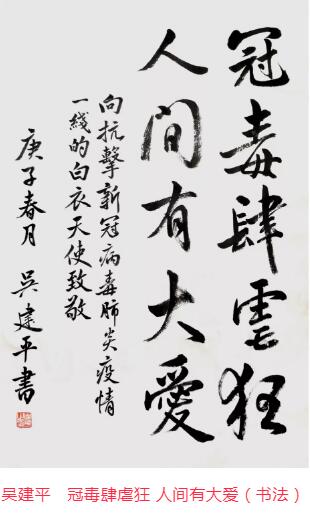 冠毒肆虐狂
人間有大愛
向抗擊新冠病毒肺炎疫情
一綫的白衣天使致敬
庚子春月 吳建平書
吴建平 冠毒肆虐狂 人间有大爱（书法）